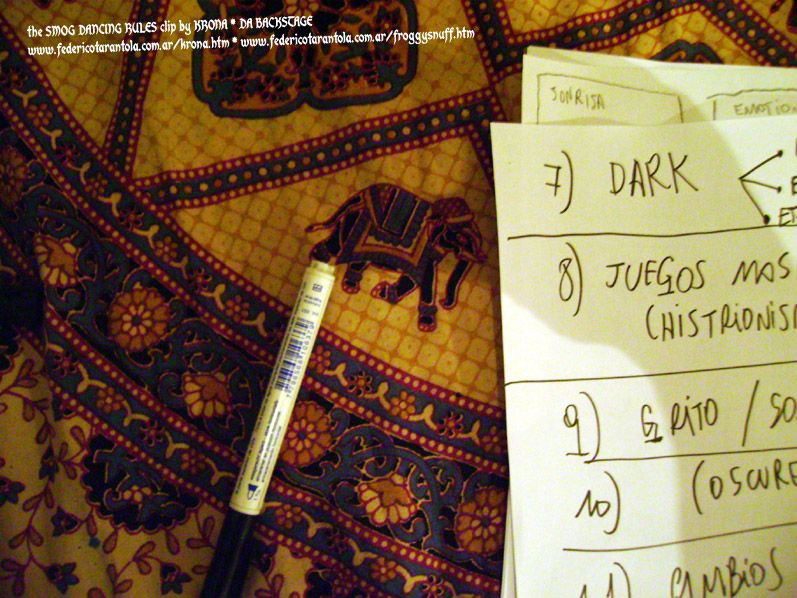 the SMOG DANCING RULES clip by KRONA * DA BACKSTAGE
www.federicotarantola.com.ar/krona.htm * www.federicotarantola.com.ar/froggysnuff.htm
SONRISA
EMOTION
7) DARK
8) JUEGOS MAS
(HISTRIONIS
9) GRITO / SO
10) (OSCURE
11) CAMBIOS